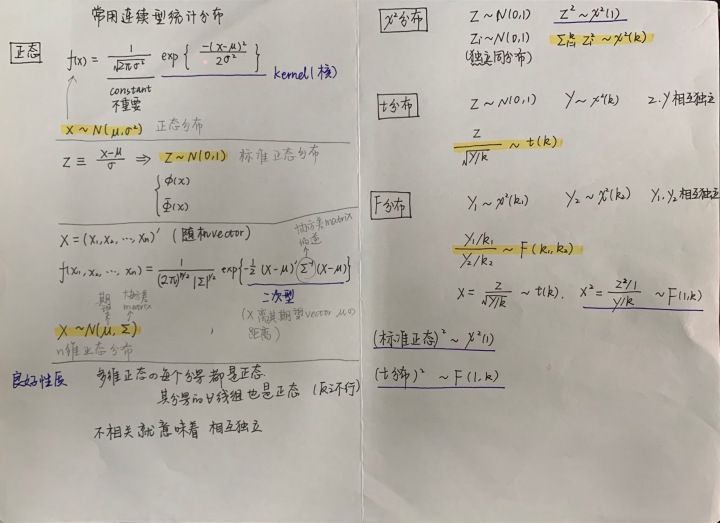 常用连续型统计分布
正态
f(x) = \frac{1}{\sqrt{2πσ²}} exp{ \frac{-(x-μ)²}{2σ²} }
kernel(核)
constant
不重要
X ~ N(μ,σ²) 正态分布
Z ≡ \frac{X-μ}{σ} ⇒ Z~N(0,1) 标准正态分布
{ φ(x)
Φ(x)
X = (X₁, X₂, ..., Xn)' (随机vector)
协方差matrix
的逆
f(x₁, x₂, ..., xn) = \frac{1}{(2π)^{n/2} |Σ|^{1/2}} exp{-\frac{1}{2} (X-μ)' Σ⁻¹ (X-μ)}
二次型
(X离其期望vector μの
距离)
期望 协方差
matrix
X ~ N(μ, Σ)
n维正态分布
良好性质 多维正态の每个分量都是正态.
其分量的∀线组也是正态
不相关就意味着 相互独立
χ²分布
Z ~ N(0,1) Z² ~ χ²(1)
Zi ~ N(0,1) Σ Zi² ~ χ²(k)
(独立同分布)
t分布
Z ~ N(0,1) Y ~ χ²(k) Z.Y相互独立
\frac{Z}{\sqrt{Y/k}} ~ t(k)
F分布
Y₁ ~ χ²(k₁) Y₂ ~ χ²(k₂) Y₁.Y₂相互独立
\frac{Y₁/k₁}{Y₂/k₂} ~ F(k₁, k₂)
X = \frac{Z}{\sqrt{Y/k}} ~ t(k). X² = \frac{Z²/1}{Y/k} ~ F(1,k)
(标准正态)² ~ χ²(1)
(t分布)² ~ F(1,k)